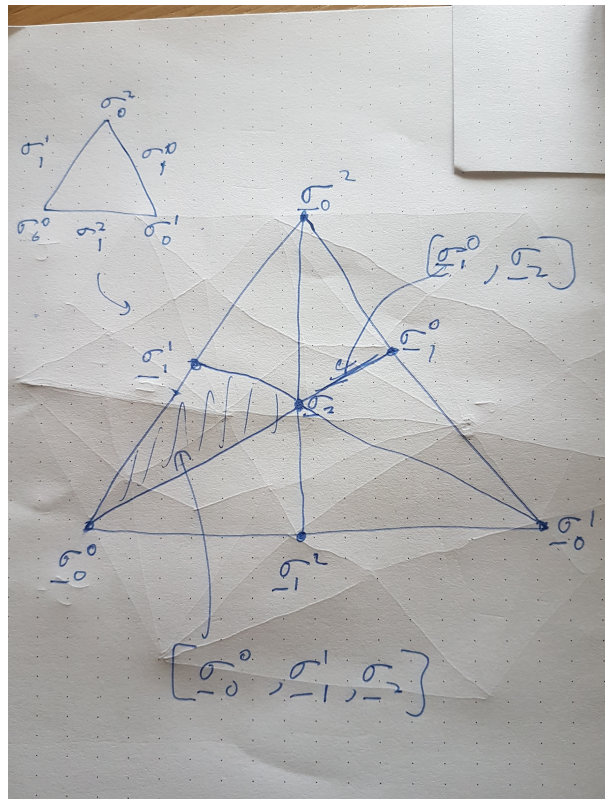 σ₀²
σ₁¹ σ₁⁰
σ₀⁰ σ₁² σ₀¹
σ̲₀²
[σ̲₁⁰, σ̲₂]
σ̲₁¹ σ̲₁⁰
σ̲₂
σ̲₀⁰ σ̲₁² σ̲₀¹
[σ̲₀⁰, σ̲₁¹, σ̲₂]